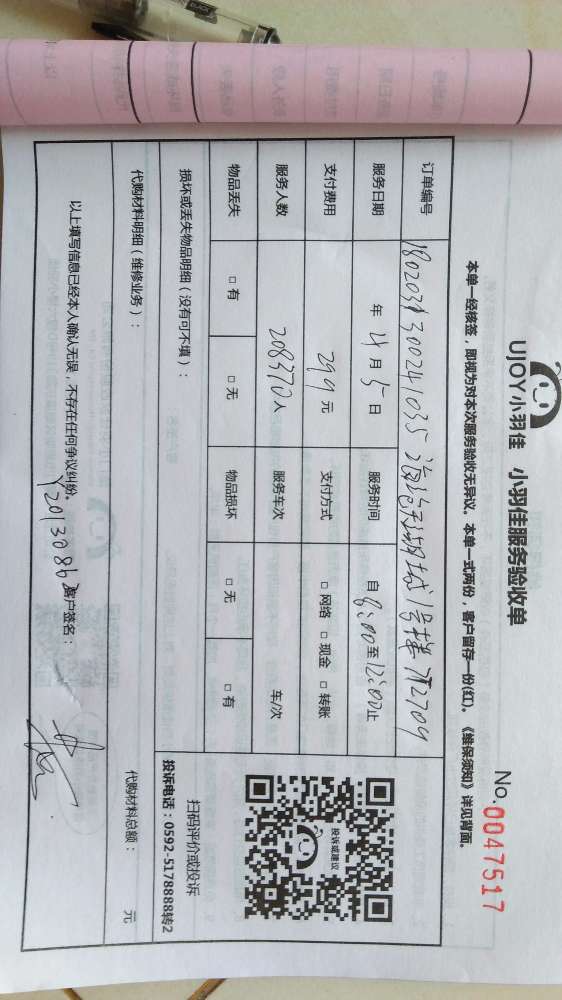 UJOY小羽佳 小羽佳服务验收单
No.0047517
本单一经核签，即视为对本次服务验收无异议。本单一式两份，客户留存一份(红)。《维保须知》详见背面。
订单编号
服务日期 年 4月5日 服务时间 自8:00至12:00止
支付费用 299元 支付方式 □网络 □现金 □转账
服务人数 208370人 服务车次 车/次
物品丢失 □有 □无 物品损坏 □无 □有
投诉或建议
扫码评价或投诉
投诉电话：0592-5178888转2
损坏或丢失物品明细（没有可不填）：
代购材料明细（维修业务）： 代购材料总额： 元
以上填写信息已经本人确认无误，不存在任何争议纠纷。 客户签名：